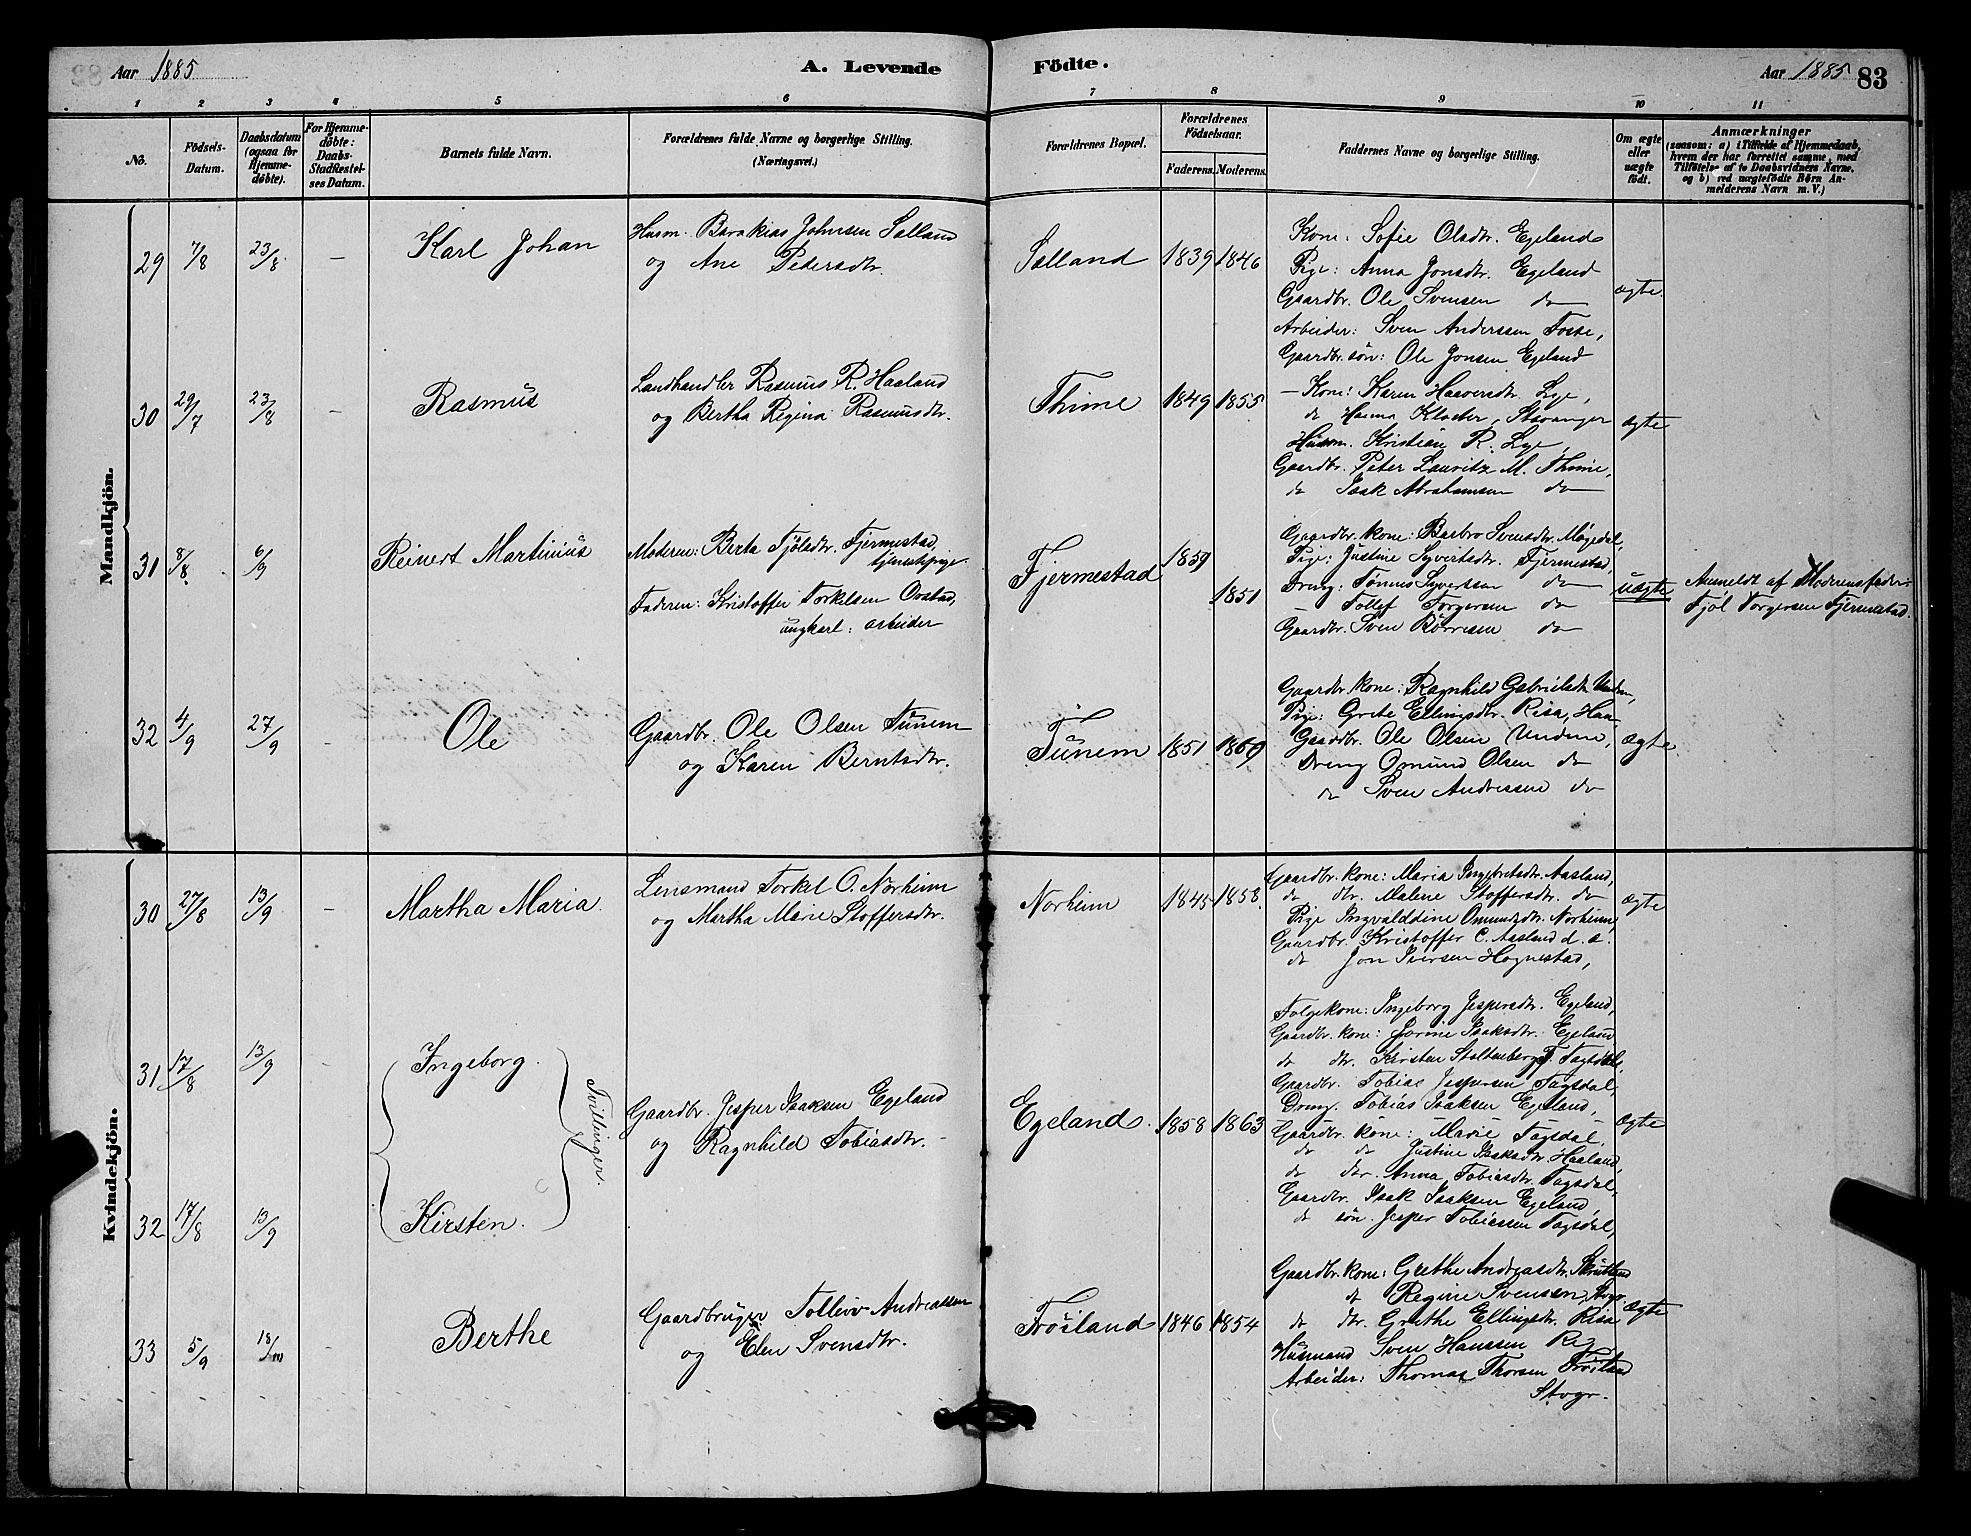 Aar 1885
A. Levende
Födte.
Aar 1885 83
1 2 3 4 5 6 7 8 9 10 11
No.
Födsels-Datum.
Daabsdatum (ogsaa for Hjemme-döbte).
For Hjemme-döbte: Daabs-Stadfæstel-ses Datum.
Barnets fulde Navn.
Forældrenes fulde Navne og borgerlige Stilling.
(Næringsvei.)
Forældrenes Bopæl.
Forældrenes Födselsaar.
Faderens. Moderens.
Faddernes Navne og borgerlige Stilling.
Om ægte eller uægte födt.
Anmærkninger
(saasom: a) i Tilfælde af Hjemmedaab,
hvem der har forrettet samme, med
Tilföielse af to Daabsvidners Navne.
og b) ved uægtefödte Börn An-
melderens Navn m. V.)
Mandkjön.
29 7/8 23/8 – Karl Johan
Husm. Barakias Johnsen Salland
og Ane Pedersdtr.
Salland 1839 1846
Kone: Sofie Olsdtr. Egeland
Pige: Anna Jonsdtr. Egeland
Gaardbr. Ole Svensen do
Arbeider: Sven Anderssen Foske,
Gaardbr. søn: Ole Jonsen Egeland
ægte.
30 29/7 23/8 – Rasmus
Landhandler Rasmus R. Haaland
og Bertha Regina Rasmusdtr.
Thime 1849 1855
– Kone: Karen Haaversdtr. Lye,
do Hanna Kloster, Stavanger
Husm. Kristian R. Lye,
Gaardbr. Peter Lauritz M. Thime,
do Isak Abrahamsen do
ægte
31 8/8 6/9 Reinert Martinius
Moderen: Berta Tjølsdtr. Fjermestad,
tjenestepige
Faderen: Kristoffer Torkelsen Orstad,
ungkarl: arbeider
Fjermestad 1859 1851
Gaardbr. kone: Barbro Svensdtr. Møgedal,
Pige: Justine Syvertsdtr. Fjermestad,
Dreng: Tønnes Syvertsen do
– Tollef Torgersen do
Gaardbr. Sven Børresen do
uægte
Anmeldt af Moderens fader
Tjøl Torgersen Fjermestad.
32 4/9 27/9 – Ole
Gaardbr. Ole Olsen Tunem
og Karen Berntsdtr.
Tunem 1851 1860
Gaardbr. kone: Ragnhild Gabrielsdtr.
Pige: Grete Ellingsdtr. Risa, Haa
Gaardbr. Ole Olsen
Dreng Omund Olsen do
do Sven Andreassen do
ægte
Kvindekjön.
30 27/8 13/9 – Martha Maria.
Lensmand Torkel O. Norheim
og Martha Marie Stoffersdtr.
Norheim 1845 1858.
Gaardbr. kone: Maria Ingebretsdtr. Aasland,
do dtr. Malene Stoffersdtr. do
Pige Ingvalddine Omundsdtr. Norheim,
Gaardbr. Kristoffer C. Aasland d. æ.
do Jon Iversen Hognestad,
ægte
31 17/8 13/9 – Ingeborg.
32 17/8 13/9 Kirsten.
Tvillinger.
Gaardbr. Jesper Isaksen Egeland
og Ragnhild Tobiasdtr. –
Egeland. 1858 1863
Folgekone: Ingeborg Jespersdtr. Egeland,
Gaardbr. kone: Isaksdtr. Egeland
do dtr. Kirsten Stoltenberg T. Tagsdal,
Gaardbr. Tobias Jespersen Tagsdal,
Dreng. Tobias Isaksen Egeland, –
Gaardbr. kone: Marie Tagsdal.
do do Justine Isaksdtr. Haaland,
do dtr. Anna Tobiasdtr. Tagsdal,
Gaardbr. Isak Isaksen Egeland,
do søn. Jesper Tobiassen Tagsdal,
ægte
33 5/9 18/10 – Berthe
Gaardbruger Tolleiv Andreassen
og Elen Svensdtr.
Frøiland 1846 1854
Gaardbr. kone: Grethe Andreasdtr.
do Regine Svensen,
do dtr. Grethe Ellingsdtr. Risa
Husmand Sven Hanssen Re,
Arbeider: Thomas Thorsen Frøiland
Stvgr.
ægte